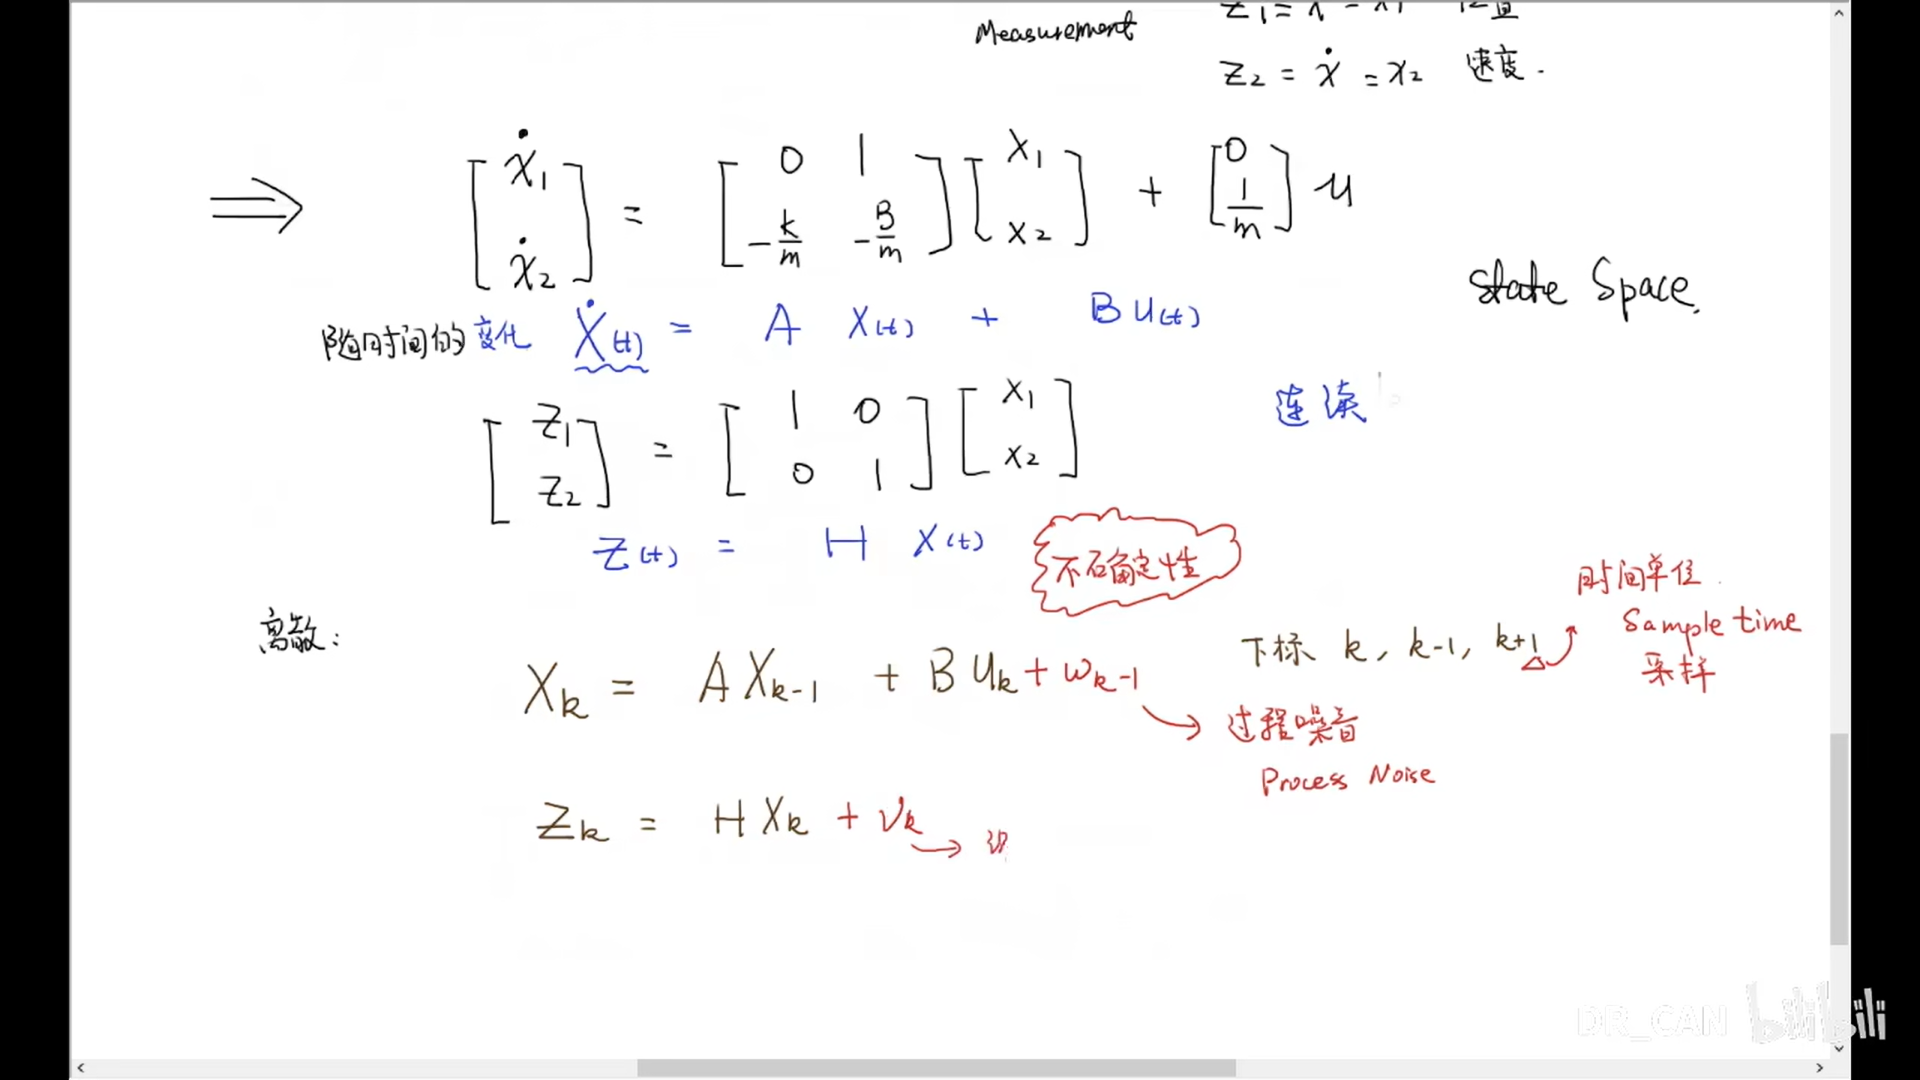 Measurement
Z₂ = ẋ = x₂ 速度.
⇒ [ẋ₁ ẋ₂] = [0 1 -k/m -B/m] [x₁ x₂] + [0 1/m] u
State Space.
随时间的变化 Ẋ(t) = A X(t) + B u(t)
[Z₁ Z₂] = [1 0 0 1] [x₁ x₂]
连续
Z(t) = H X(t)
不确定性
离散:
X_k = A X_{k-1} + B U_k + ω_{k-1}
下标 k, k-1, k+1
时间单位
Sample time
采样
过程噪音
Process Noise
Z_k = H X_k + ν_k
DR_CAN bilibili